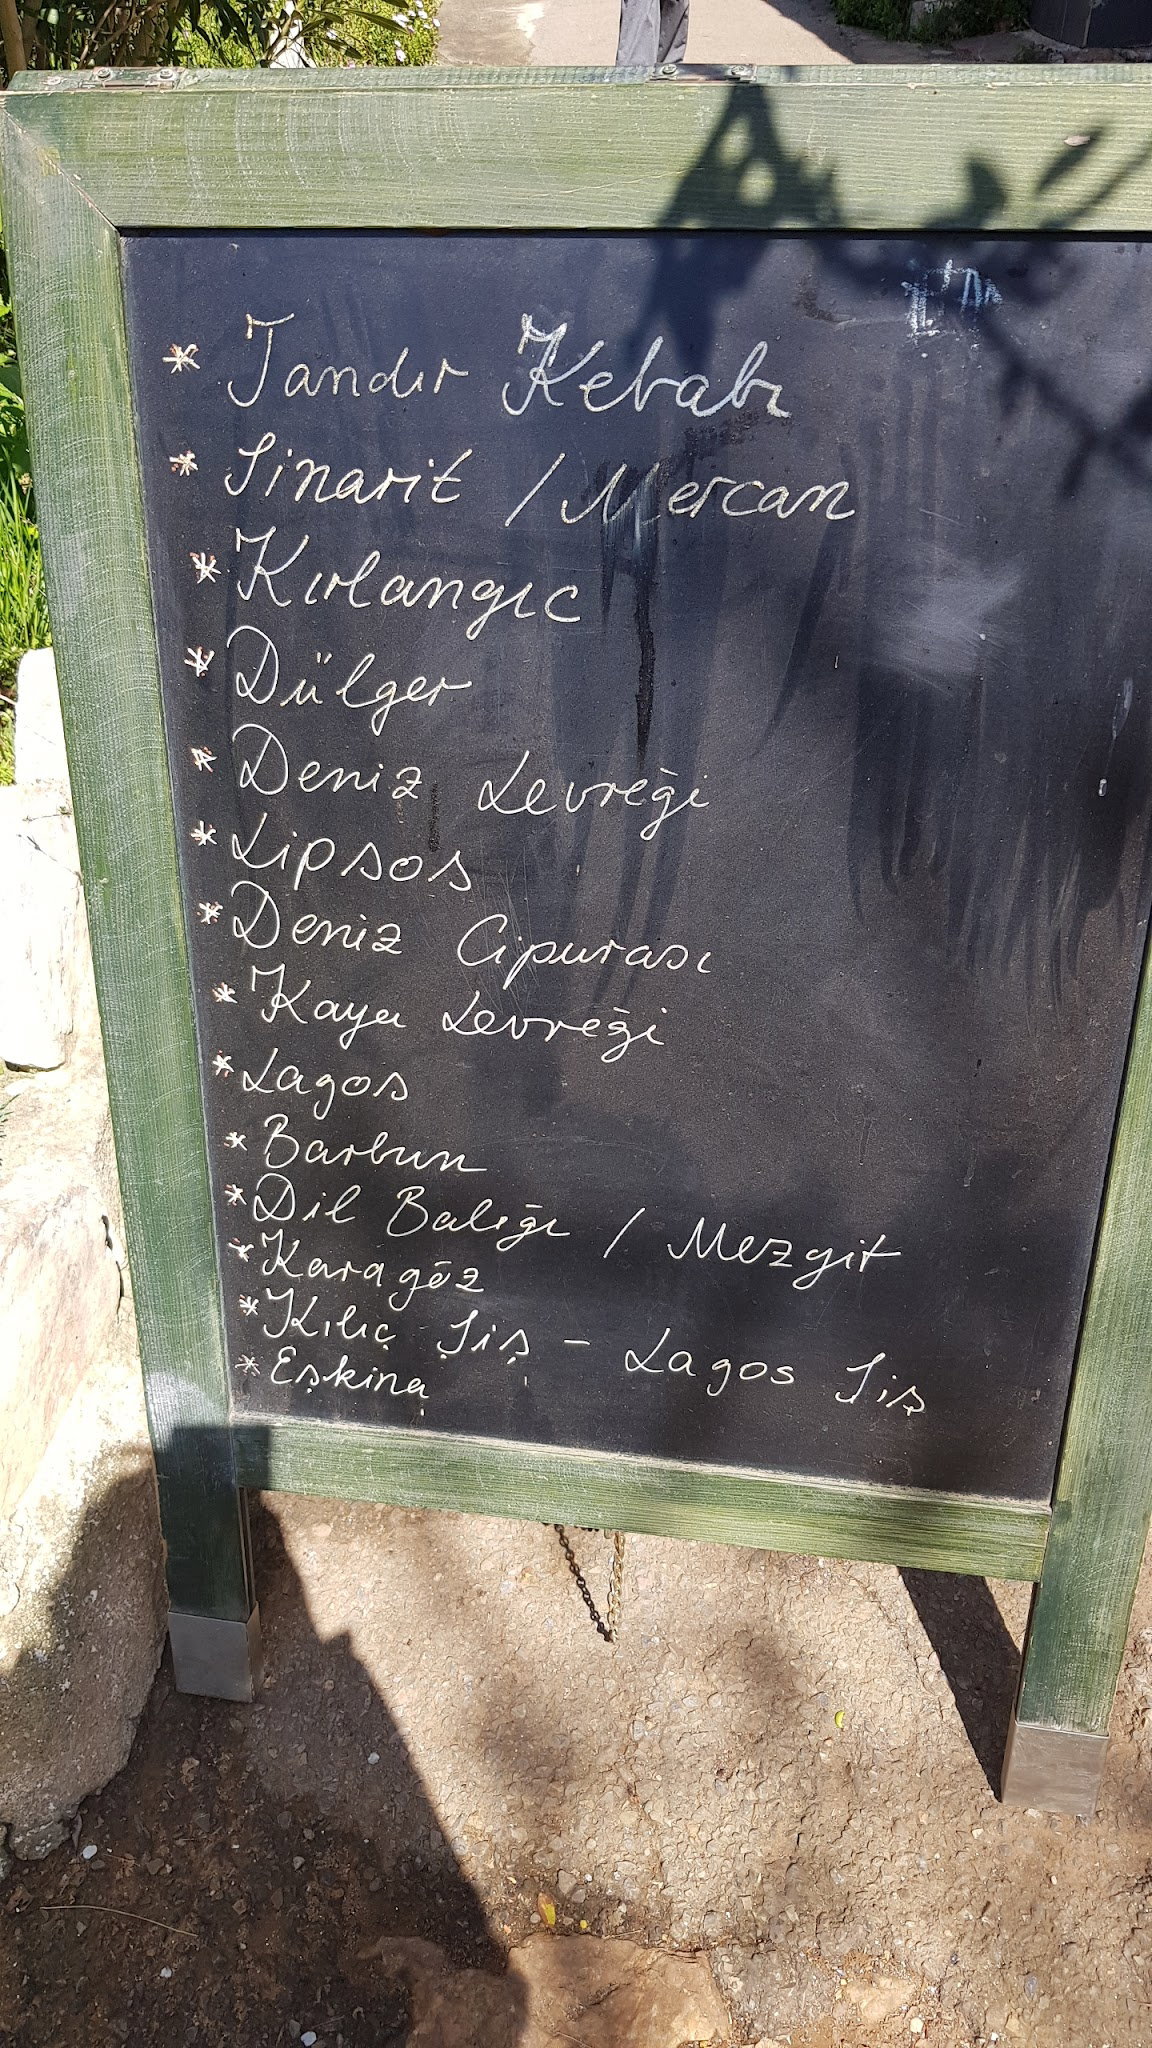 * Tandır Kebabı
* Sinarit / Mercan
* Kırlangıc
* Dülger
* Deniz Levreği
* Lipsos
* Deniz Cipurası
* Kaya Levreği
* Lagos
* Barbun
* Dil Balığı / Mezgit
* Karagöz
* Kılıç Şiş - Lagos Şiş
* Eşkina